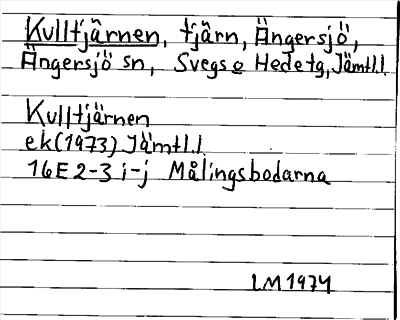 Kulltjärnen, tjärn, Ängersjö,
Ängersjö sn, Svegs o Hede tg, Jämtl.l
Kulltjärnen
ek(1973) Jämtl.l
16E 2-3 i-j Målingsbodarna
LM 1974